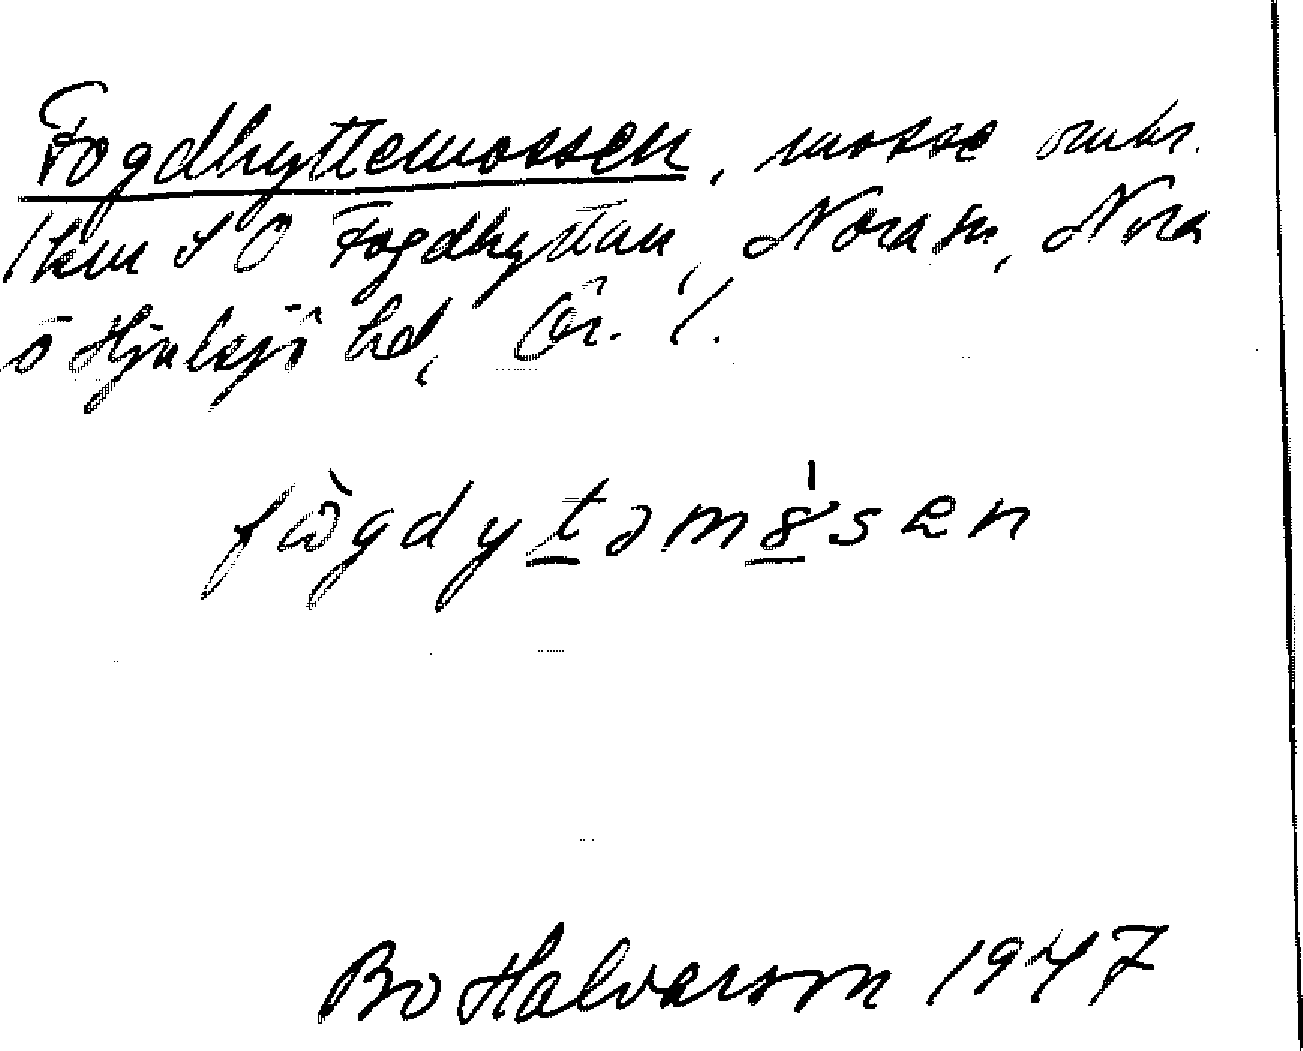 Fogdhyttemossen, mosse omkr.
1 km SO Fogdhyttan, Nora sn, Nora
o Hjulsjö hd, Ör. l.
fògdytəmósen
Bo Halvarson 1947